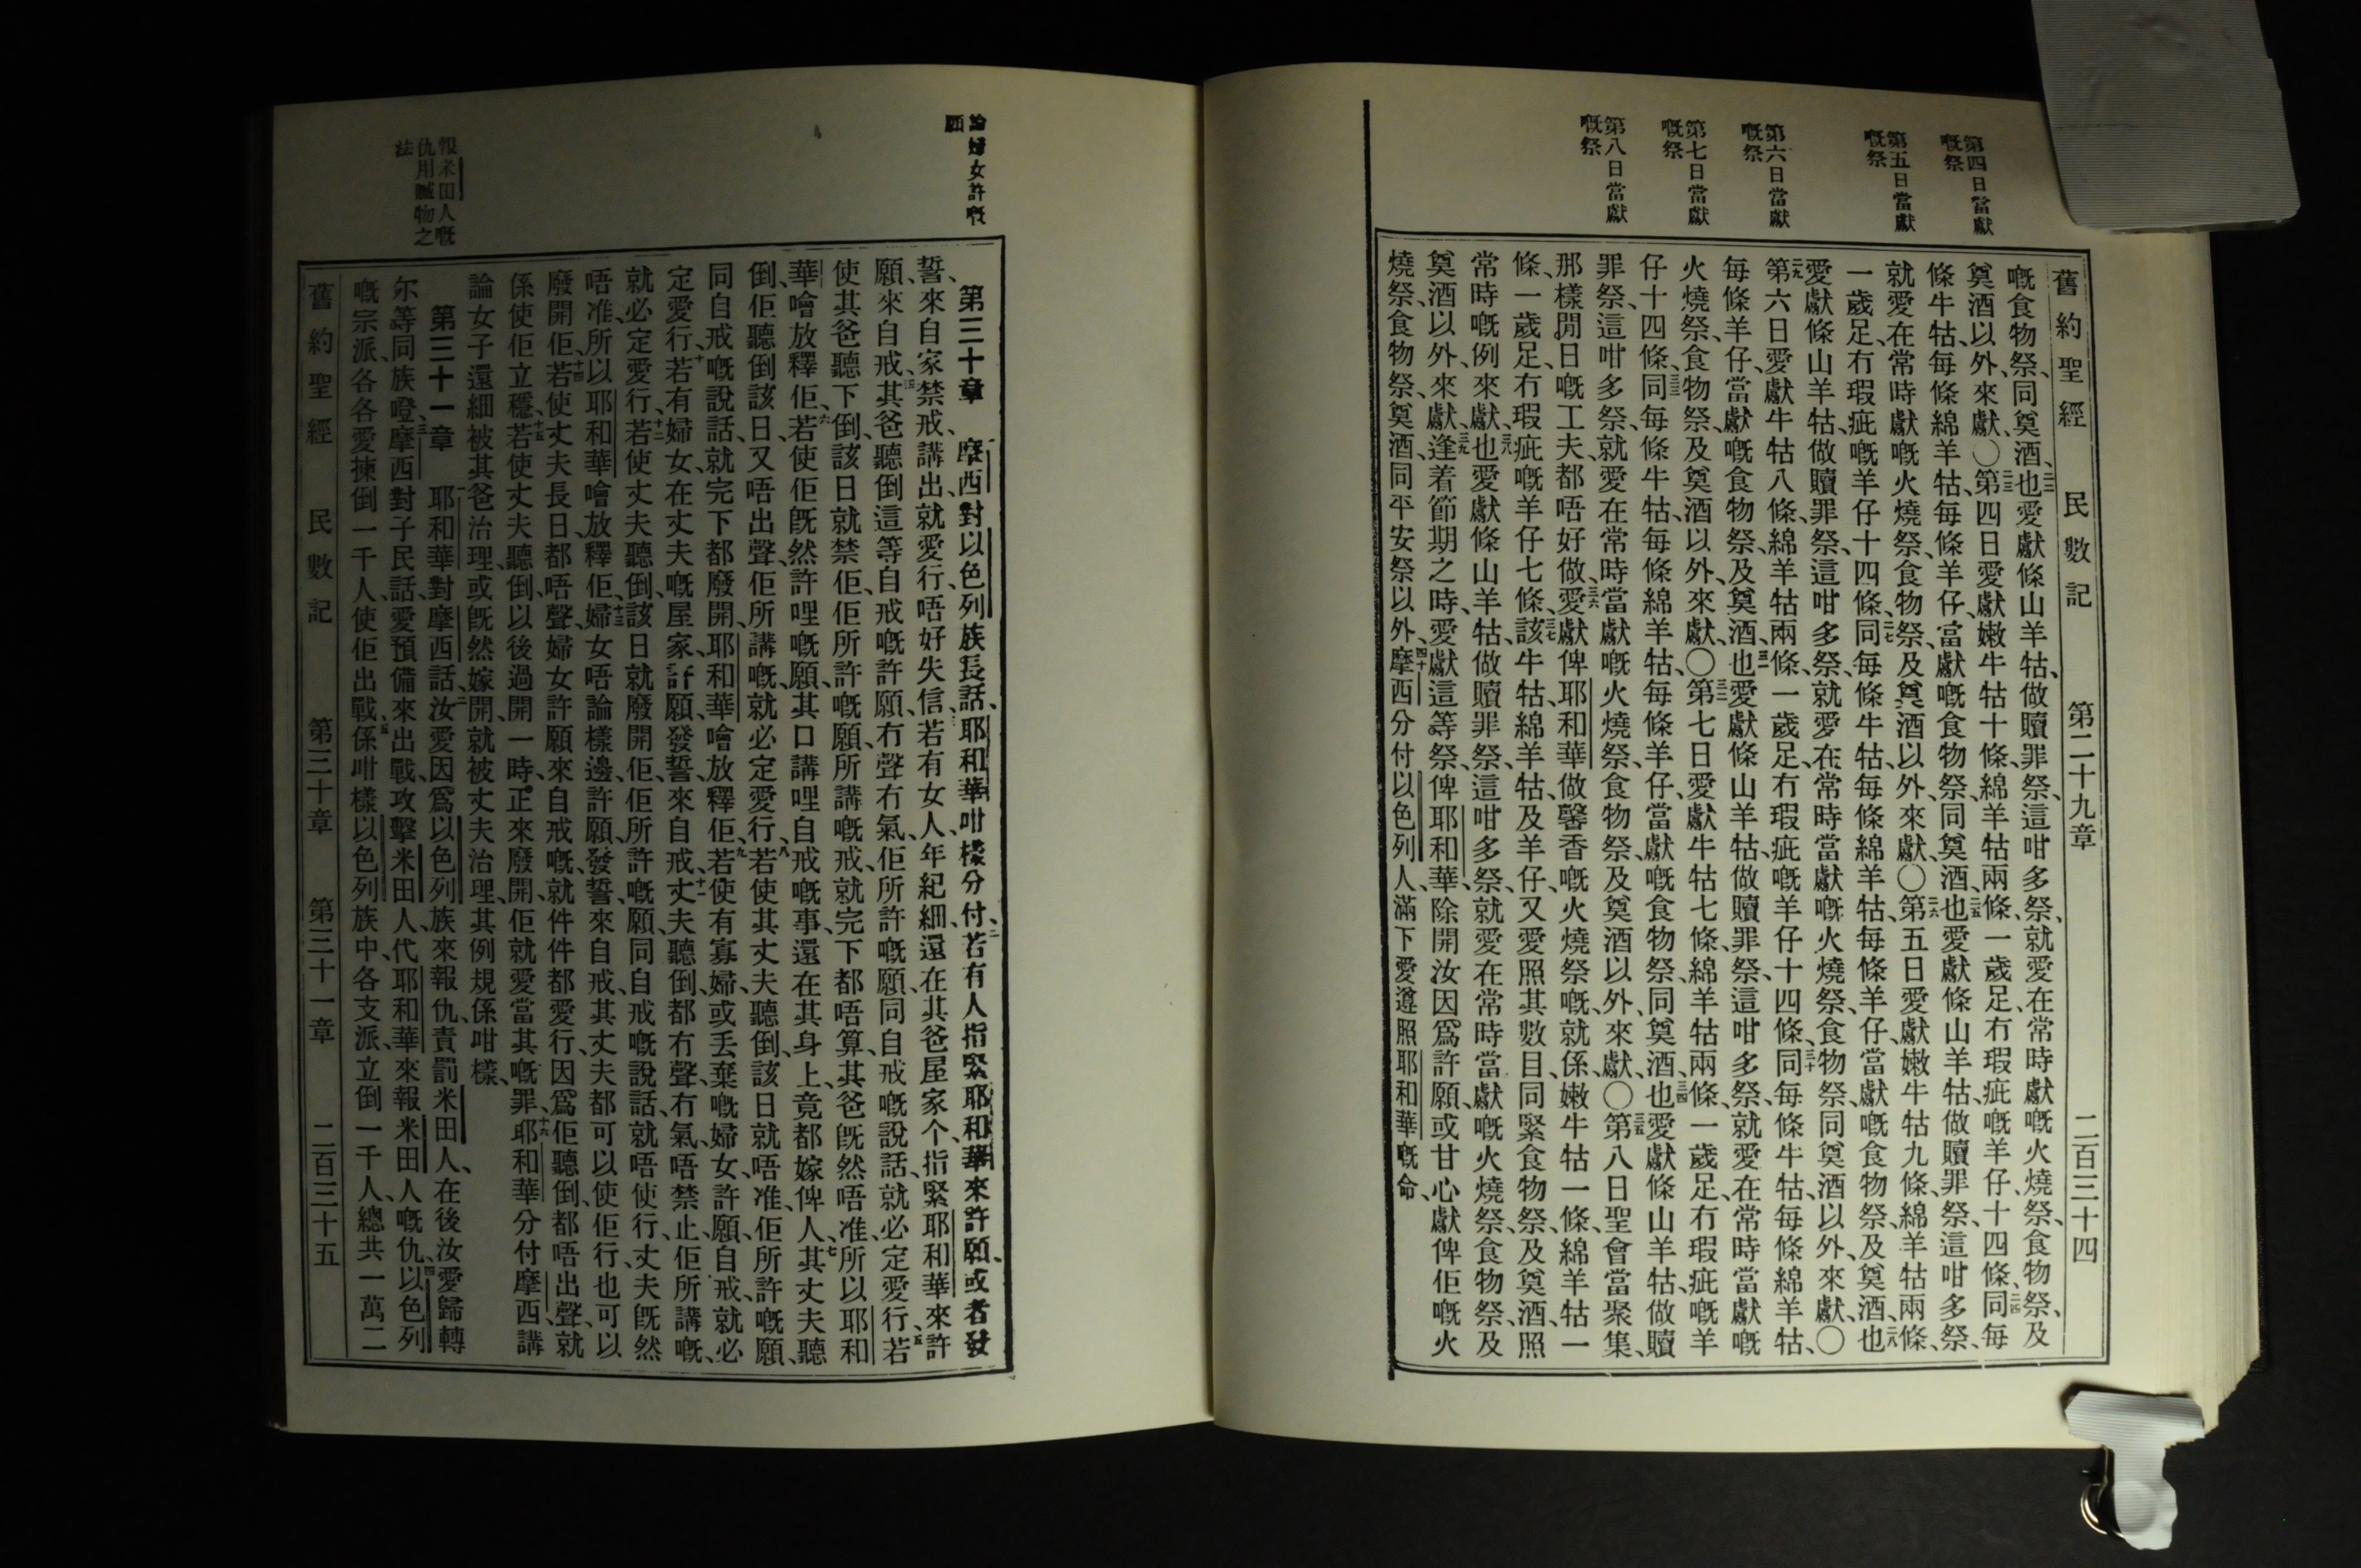 第四日當獻
嘅祭
第五日當獻
嘅祭
第六日當獻
嘅祭
第七日當獻
嘅祭
第八日當獻
嘅祭
舊約聖經 民數記 第二十九章 二百三十四
嘅食物祭、同奠酒、也愛獻條山羊牯、做贖罪祭、這咁多祭、就愛在常時獻嘅火燒祭、食物祭、及
奠酒以外、來獻、〇第四日愛獻嫩牛牯十條、綿羊牯兩條、一歲足冇瑕疵嘅羊仔、十四條、同每
條牛牯、每條綿羊牯、每條羊仔、當獻嘅食物祭、同奠酒、也愛獻條山羊牯、做贖罪祭、這咁多祭、
就愛在常時獻嘅火燒祭、食物祭、及奠酒以外、來獻、〇第五日愛獻嫩牛牯九條、綿羊牯兩條、
一歲足、冇瑕疵嘅羊仔十四條、同每條牛牯、每條綿羊牯、每條羊仔、當獻嘅食物祭、及奠酒、也
愛獻條山羊牯、做贖罪祭、這咁多祭、就愛在常時當獻嘅火燒祭、食物祭、同奠酒以外、來獻、〇
第六日愛獻牛牯八條、綿羊牯兩條、一歲足、冇瑕疵嘅羊仔十四條、同每條牛牯、每條綿羊牯、
每條羊仔、當獻嘅食物祭、及奠酒、也愛獻條山羊牯、做贖罪祭、這咁多祭、就愛在常時當獻嘅
火燒祭、食物祭、及奠酒以外、來獻、〇第七日愛獻牛牯七條、綿羊牯兩條、一歲足、冇瑕疵嘅羊
仔十四條、同每條牛牯、每條綿羊牯、每條羊仔、當獻嘅食物祭、同奠酒、也愛獻條山羊牯、做贖
罪祭、這咁多祭、就愛在常時當獻嘅火燒祭、食物祭、及奠酒以外、來獻、〇第八日聖會當聚集、
那樣閒日嘅工夫、都唔好做、愛獻俾耶和華、做馨香嘅火燒祭嘅、就係、嫩牛牯一條、綿羊牯一
條、一歲足、冇瑕疵嘅羊仔七條、該牛牯、綿羊牯、及羊仔、又愛照其數目、同緊食物祭、及奠酒、照
常時嘅例來獻、也愛獻條山羊牯、做贖罪祭、這咁多祭、就愛在常時當獻嘅火燒祭、食物祭、及
奠酒以外、來獻、逢着節期之時、愛獻這等祭、俾耶和華、除開汝因爲許願、或甘心獻俾佢嘅火
燒祭、食物祭、奠酒、同平安祭以外、摩西分付以色列人、滿下愛遵照耶和華嘅命、
論婦女許嘅
願
報米田人嘅
仇用贓物之
法
第三十章 摩西對以色列族長話、耶和華咁樣分付、若有人指緊耶和華來許願、或者發
誓、來自家禁戒、講出、就愛行、唔好失信、若有女人、年紀細、還在其爸屋家个、指緊耶和華、來許
願、來自戒、其爸聽倒這等自戒嘅許願、冇聲冇氣、佢所許嘅願、同自戒嘅說話、就必定愛行、若
使其爸聽下倒、該日就禁佢、佢所許嘅願、所講嘅戒、就完下都唔算、其爸旣然唔准、所以耶和
華、噲放釋佢、若使佢旣然許哩嘅願、其口講哩自戒嘅事、還在其身上、竟都嫁俾人、其丈夫聽
倒、佢聽倒該日、又唔出聲、佢所講嘅、就必定愛行、若使其丈夫聽倒、該日就唔准、佢所許嘅願、
同自戒嘅說話、就完下都廢開、耶和華噲放釋佢、若使有寡婦、或丢棄嘅婦女、許願、自戒、就必
定愛行、若有婦女、在丈夫嘅屋家、許願、發誓、來自戒、丈夫聽倒、都冇聲、冇氣、唔禁止佢所講嘅、
就必定愛行、若使丈夫聽倒、該日就廢開佢、佢所許嘅願、同自戒嘅說話、就唔使行、丈夫旣然
唔准、所以耶和華噲放釋佢、婦女唔論樣邊、許願、發誓、來自戒、其丈夫都可以使佢行、也可以
廢開佢、若使丈夫長日都唔聲、婦女許願來自戒嘅、就件件都愛行、因爲佢聽倒、都唔出聲、就
係使佢立穩、若使丈夫聽倒、以後過開一時、正來廢開、佢就愛當其嘅罪、耶和華分付摩西、講
論女子還細被其爸治理、或旣然嫁開、就被丈夫治理、其例規係咁樣、
第三十一章 耶和華對摩西話、汝愛因爲以色列族來報仇、責罰米田人、在後汝愛歸轉
尔等同族嶝、摩西對子民話、愛預備來出戰、攻擊米田人、代耶和華來報米田人嘅仇、以色列
嘅宗派、各各愛揀倒一千人、使佢出戰、係咁樣以色列族中、各支派、立倒一千人、總共一萬二
舊約聖經 民數記 第三十章 第三十一章 二百三十五